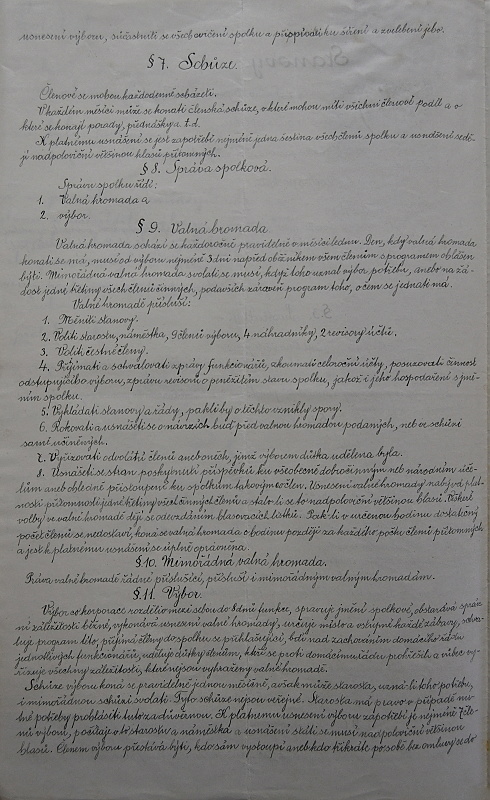 usnesení výboru, súčastniti se všech cvičení spolku a přispívati ku šíření a zvelebení jeho.
§ 7. Schůze.
Členové se mohou každodenně scházeti.
V každém měsíci může se konati členská schůze, o které mohou míti všichni členové podíl a o
které se konají porady, přednášky a.t.d.
K platnému usnášení se jest zapotřebí nejméně jedna šestina všech členů spolku a usnášení se dě-
jí nadpoloviční většinou hlasů přítomných.
§ 8. Správa spolková.
Správu spolku řídí:
1. Valná hromada a
2. výbor.
§ 9. Valná hromada
Valná hromada schází se každoročně pravidelně v měsíci lednu. Den, kdy valná hromada
konati se má, musí od výboru nejméně 3 dni napřed oběžníkem všem členům s programem ohlášen
býti. Mimořádná valná hromada svolati se musí, když toho uznal výbor potřebu, anebo na žá-
dost jedné třetiny všech členů činných, podavších zároveň program toho, o čem se jednati má.
Valné hromadě přísluší:
1. Měniti stanovy.
2. Voliti starostu, náměstka, 9 členů výboru, 4 náhradníky, 2 revisory účtů.
3. Voliti čestné členy.
4. Přijímati a schvalovati zprávy funkcionářů, zkoumati celoroční účty, posuzovati činnost
odstupujícího výboru, zprávu revisorů o peněžitém stavu spolku, jakož i jeho hospodaření s jmě-
ním spolku.
5. Vykládati stanovy a řády, pakli by o těchto vznikly spory.
6. Rokovati a usnášeti se o návrzích buď před valnou hromadou podaných, neb ve schůzi
samé učiněných.
7. Vyřizovati odvolání členů aneb oněch, jimž výborem důtka udělena byla.
8. Usnášeti se stran poskytnutí příspěvků ku všeobecně dobročinným neb národním úče-
lům aneb ohledně přistoupení ku spolkům takovým co člen. Usnesení valné hromady nabývá plat-
nosti přítomností jedné třetiny všech činných členů a stane-li se to nadpoloviční většinou hlasů. Veškeré
volby ve valné hromadě dějí se odevzdáním hlasovacích lístků. Pak-li v určenou hodinu dostatečný
počet členů se nedostaví, koná se valná hromada o hodinu později za každého počtu členů přítomných
a jest k platnému usnášení se úplně oprávněna.
§ 10. Mimořádná valná hromada.
Práva valné hromadě řádné příslušící, přísluší i mimořádným valným hromadám.
§ 11. Výbor.
Výbor co korporace rozdělí mezi sebou do 8 dnů funkce, spravuje jmění spolkové, obstarává správ-
ní záležitosti běžné, vykonává usnesení valné hromady, určuje místo a vstupné každé zábavy, schva-
luje program této, přijímá členy do spolku se přihlašující, bdí nad zachováním domácího řádu
jednotlivých funkcionářů, uděluje důtky členům, kteří se proti domácímu řádu prohřešili a vůbec vy-
řizuje všechny záležitosti, které nejsou vyhraženy valné hromadě.
Schůze výboru koná se pravidelně jednou měsíčně, avšak může starosta, uzná-li toho potřebu,
i mimořádnou schůzi svolati. Tyto schůze nejsou veřejné. Starosta má právo v případě nu-
tné potřeby prohlásti tuto za důvěrnou. K platnému usnesení výboru zapotřebí je nejméně 7 čle-
nů výboru, počítaje v to starostu a náměstka a usnášení státi se musí nadpoloviční většinou
hlasů. Členem výboru přestává býti, kdo sám vystoupí aneb kdo třikráte po sobě bez omluvy se do